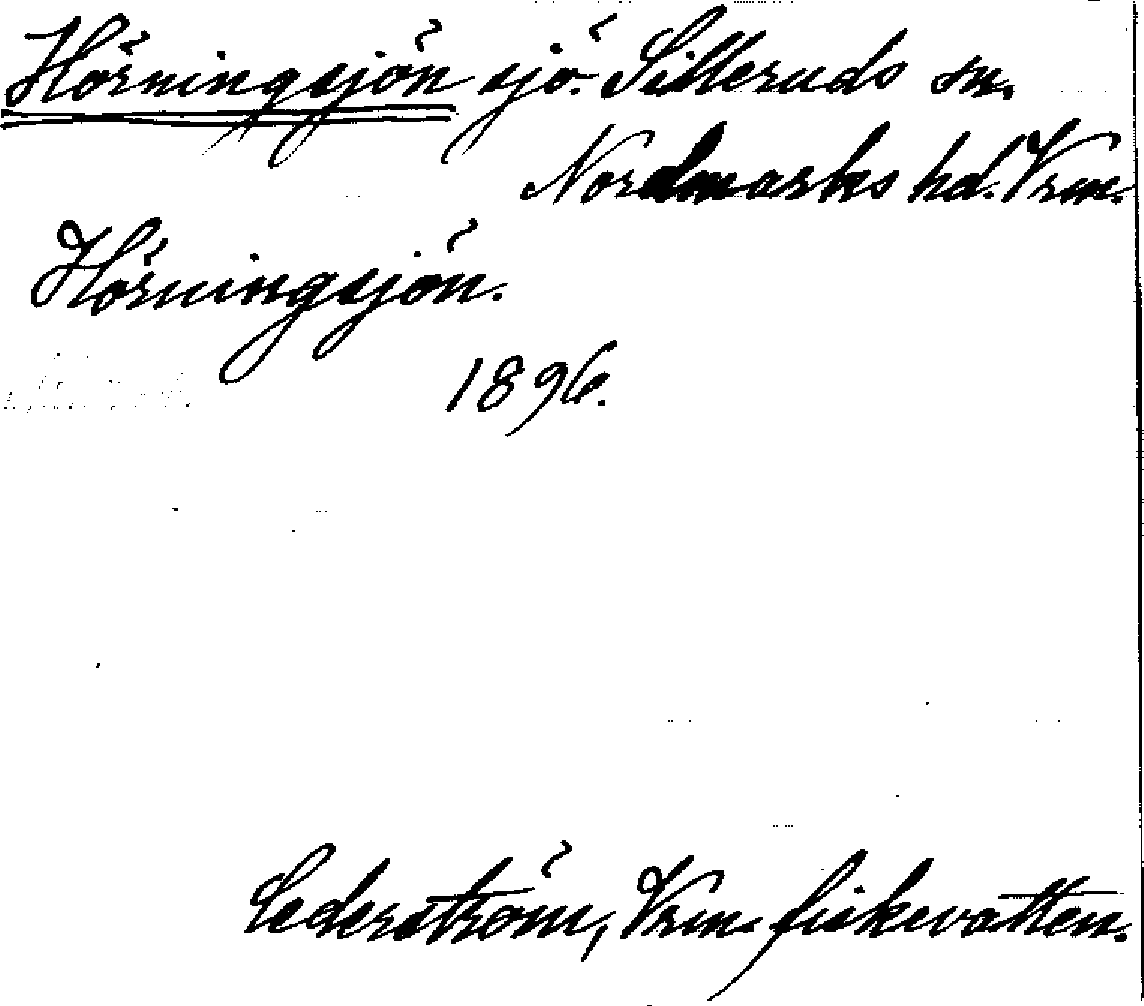 Hörningsjön sjö. Silleruds sn.
Nordmarks hd. Vrm.
Hörningsjön.
1896.
Cederström, Vrm. fiskevatten.